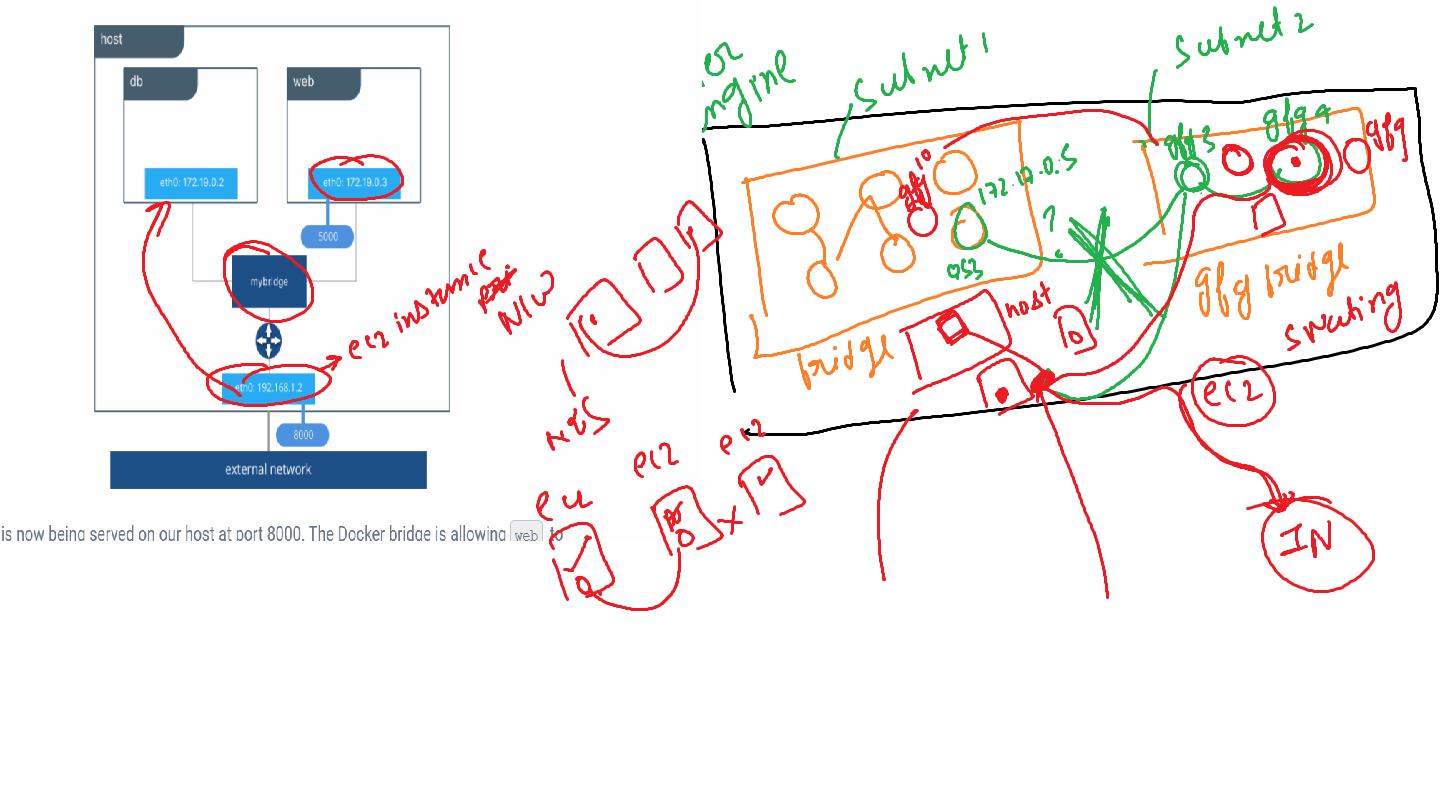 host
db
web
eth0: 172.19.0.2
eth0: 172.19.0.3
5000
mybridge
eth0: 192.168.1.2
8000
external network
is now being served on our host at port 8000. The Docker bridge is allowing web to
ec2 instance
N/W
ngine
Subnet 1
Subnet 2
172.17.0.5
?
gfg 3
gfg 4
gfg
bridge
gfg bridge
host
ec2
IN
ec2
ec2